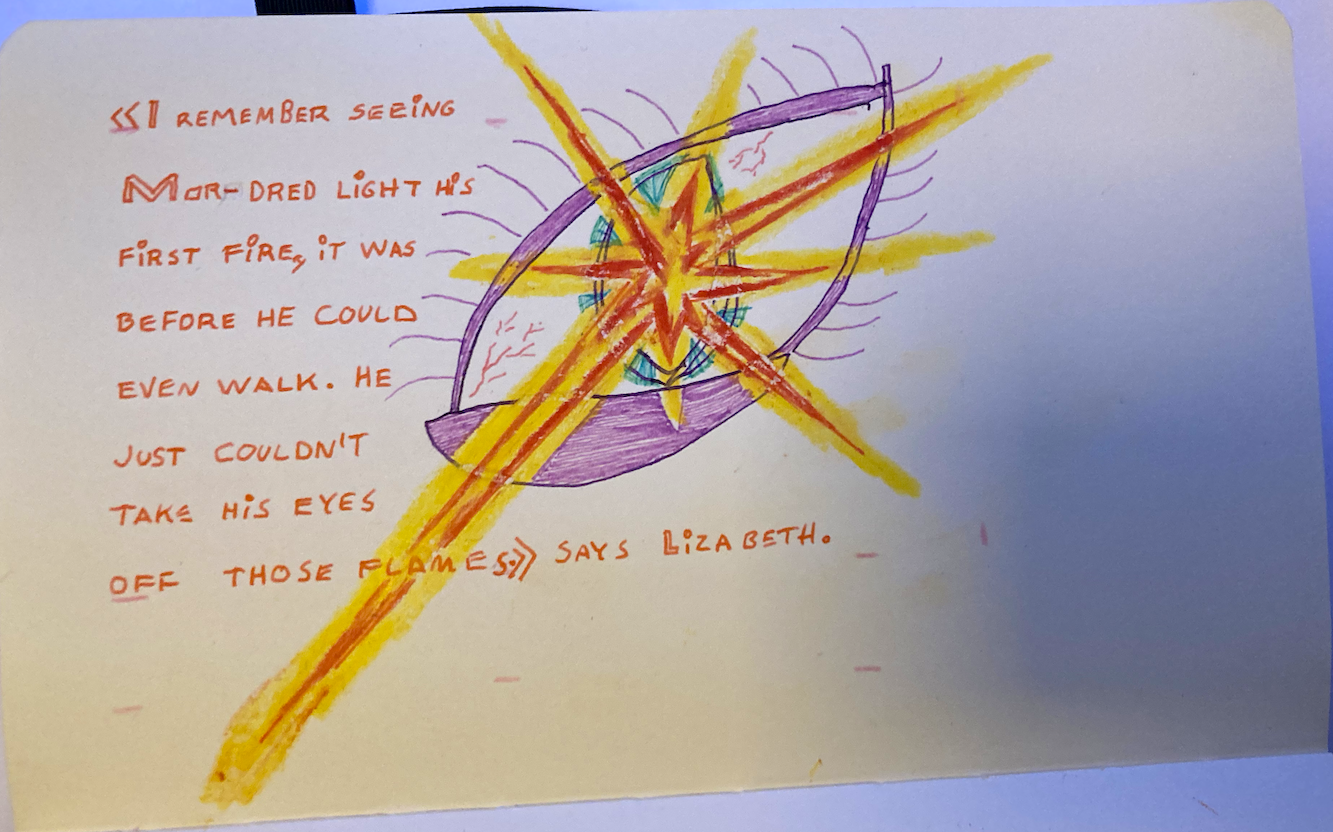 «I REMEMBER SEEING
MOR-DRED LIGHT HiS
FiRST FiRE, iT WAS
BEFORE HE COULD
EVEN WALK. HE
JUST COULDN'T
TAKE HiS EYES
OFF THOSE FLAMES.» SAYS LiZABETH.